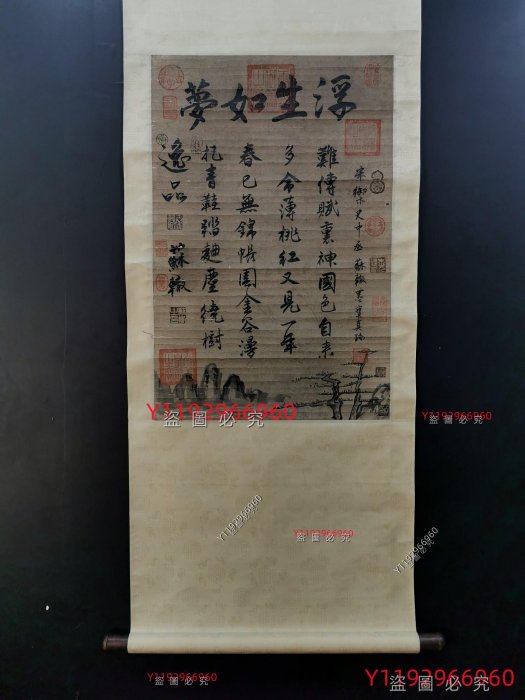 浮生如夢
難傳賦裏神國色自来
多命薄桃紅又見一年
春已無錦帳圍金谷漫
把青鞋踏麯塵繞樹
逸品
蘇轍
Y1192966960
盜圖必究
Y1192966960
盜圖必究
Y1192966960
盜圖必究
Y1192966960
盜圖必究
Y1192966960
盜圖必究
Y1192966960
盜圖必究
Y1192966960
盜圖必究